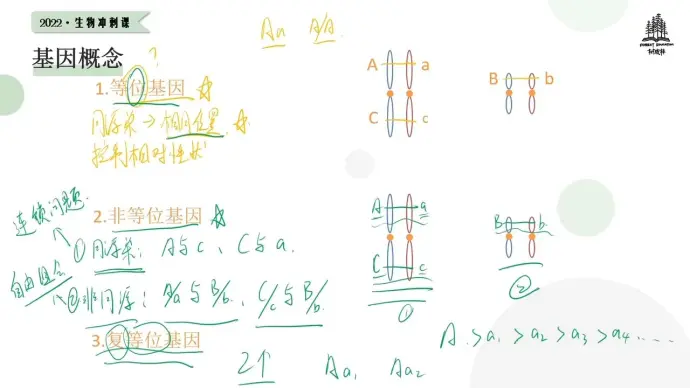 2022·生物冲刺课
Aa A/A.
基因概念
?
1.等位基因
同源染→相同位置
控制相对性状
A a
C c
B b
连锁问题
2.非等位基因
①同源染: A与c、C与a.
自由组合
②非同源: A/a与B/b. C/c与B/b.
A a
C c
①
B b
②
3.复等位基因
2个 Aa₁ Aa₂
A.>a₁>a₂>a₃>a₄.....